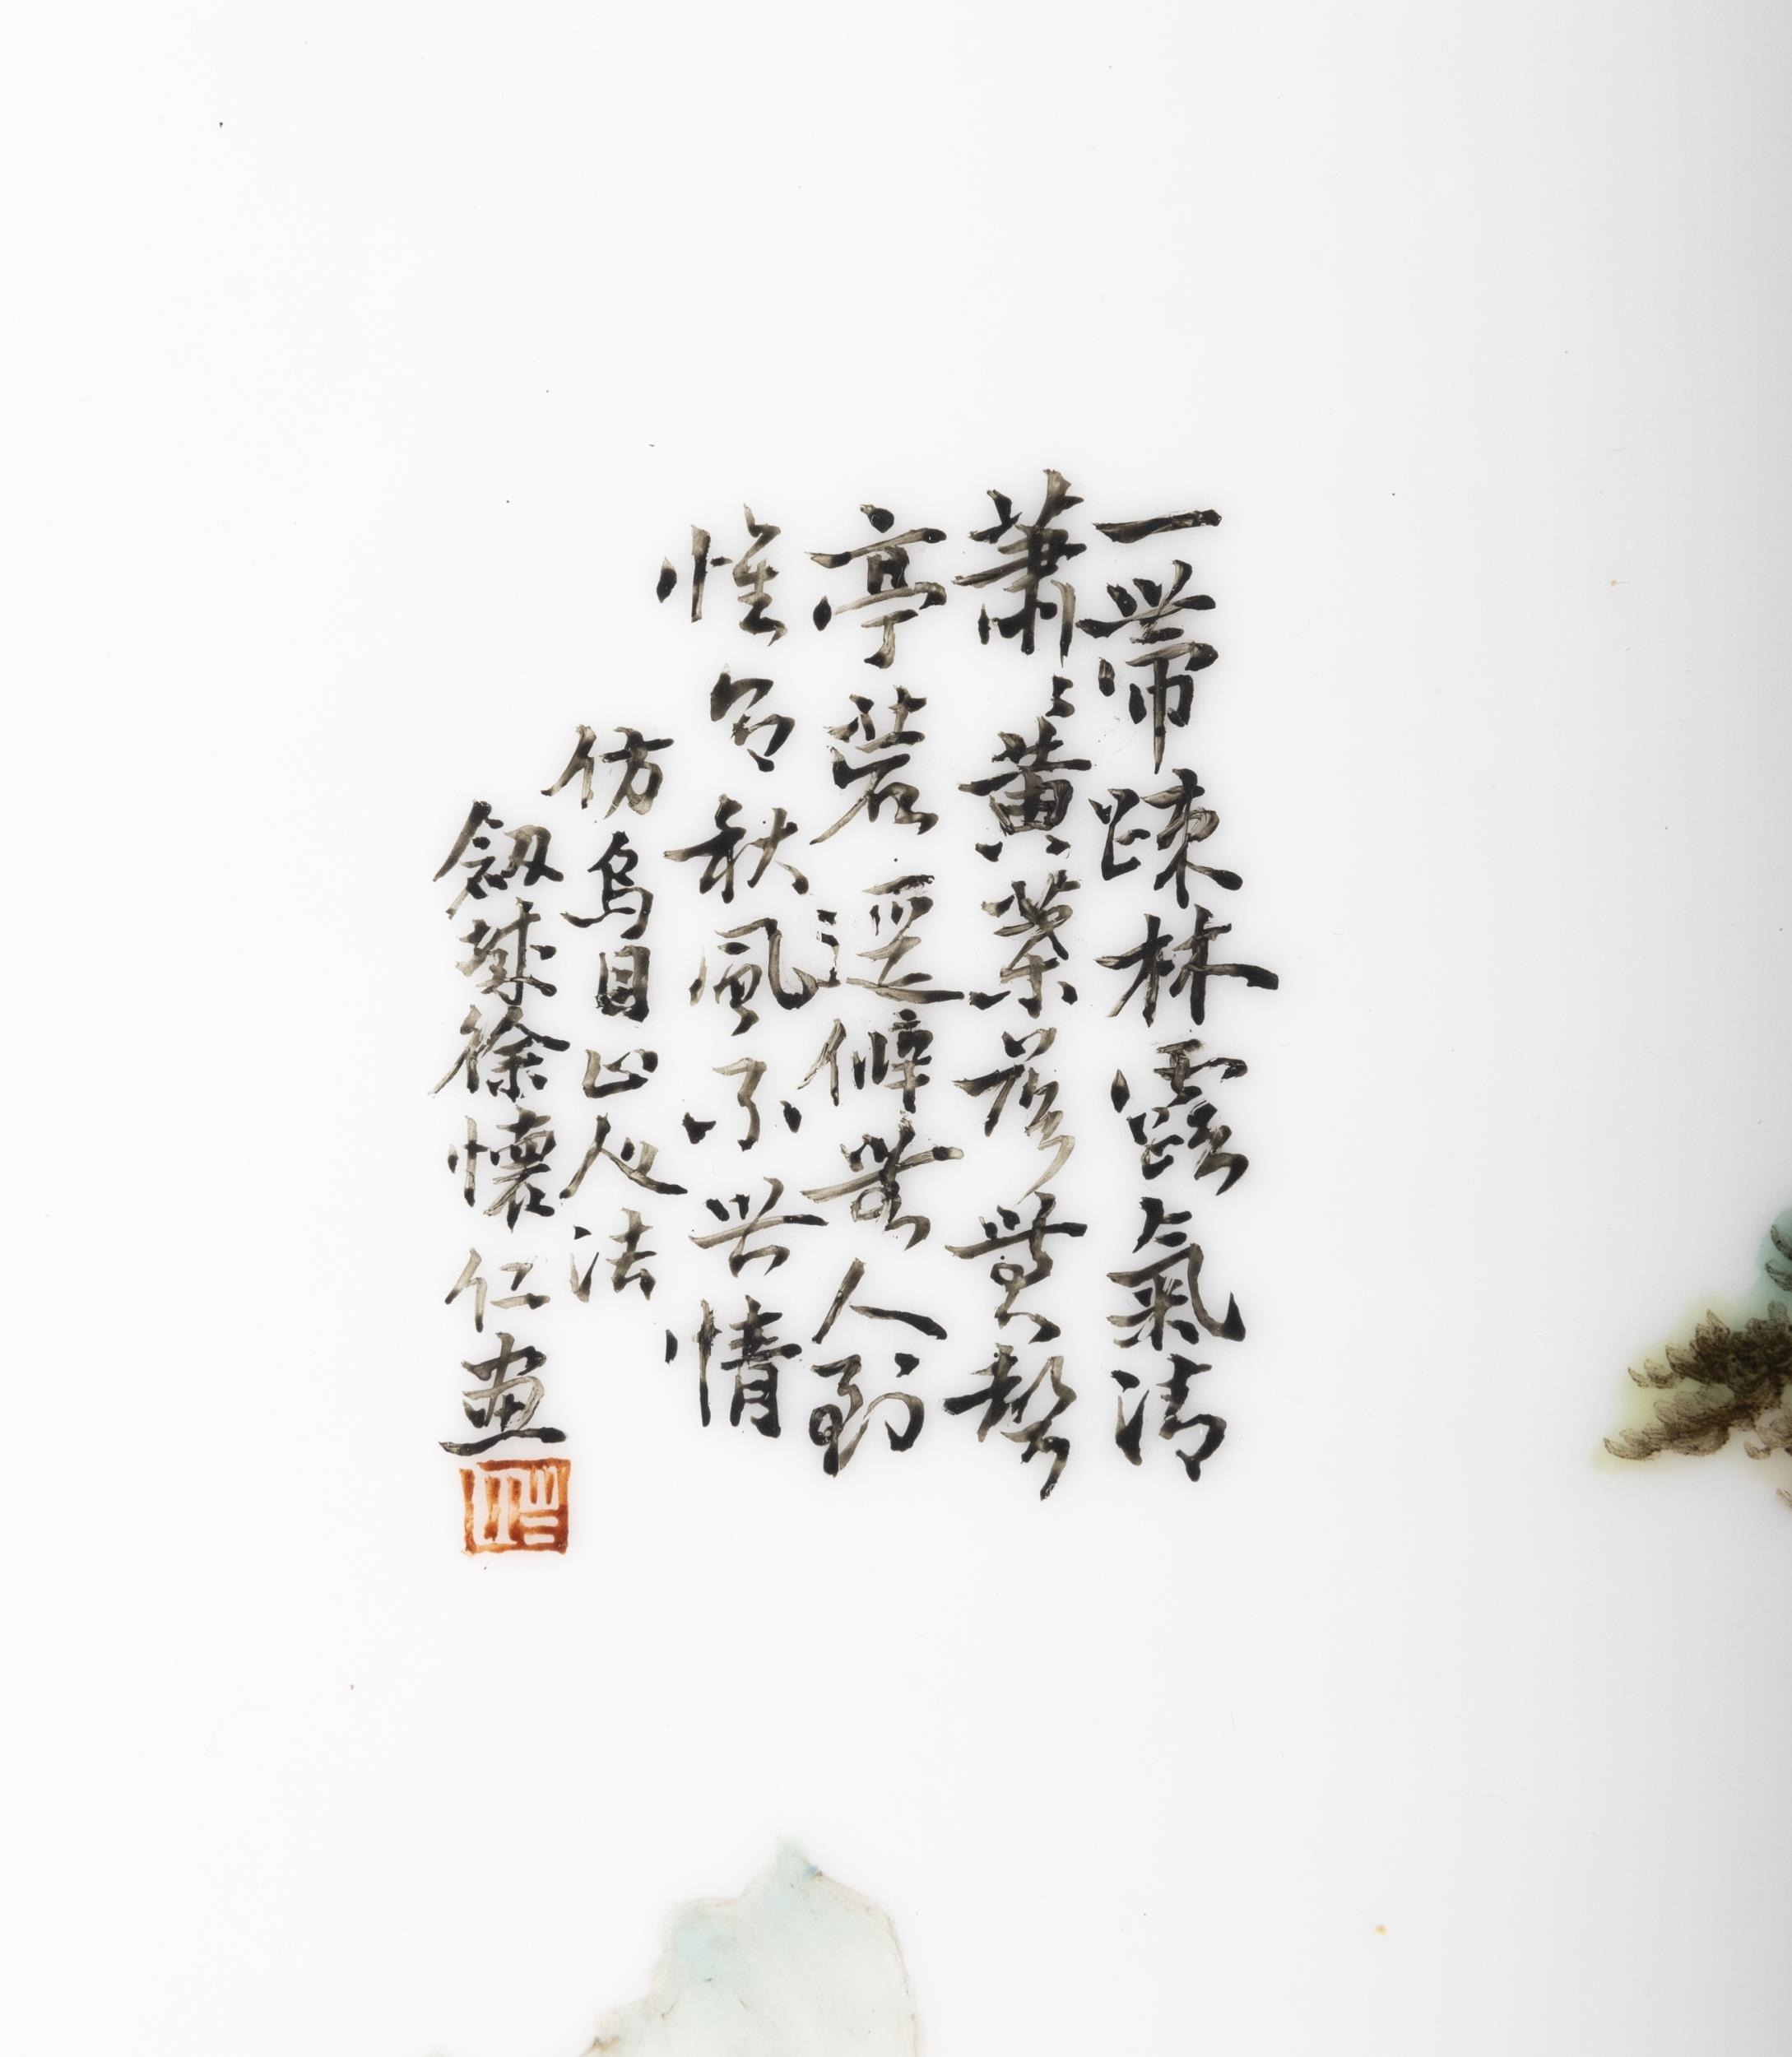 一帶踈林露氣清
蕭〻黃葉落無聲
亭逕僻無人到
惟有秋風不世情
仿烏目山人法
釼城徐懷仁畫